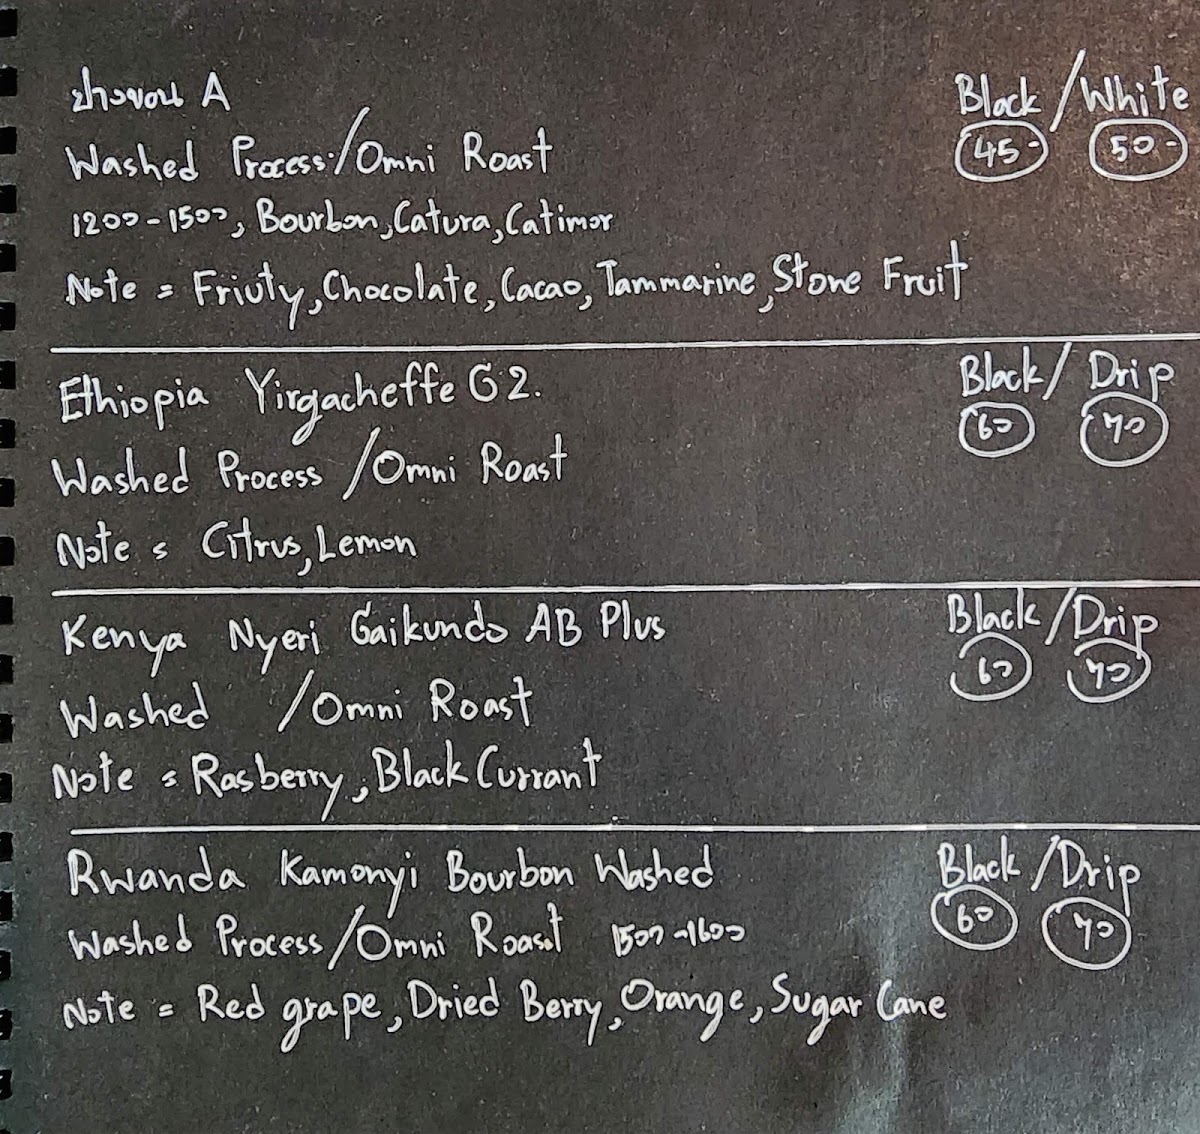 ปางขอน A Black / White
Washed Process / Omni Roast 45- 50-
1200-1500, Bourbon, Catura, Catimor
Note = Friuty, Chocolate, Cacao, Tammarine, Stone Fruit
Ethiopia Yirgacheffe G2. Black / Drip
60 70
Washed Process / Omni Roast
Note = Citrus, Lemon
Kenya Nyeri Gaikundo AB Plus Black / Drip
60 70
Washed / Omni Roast
Note = Rasberry, Black Currant
Rwanda Kamonyi Bourbon Washed Black / Drip
Washed Process / Omni Roast 1500-1600 60 70
Note = Red grape, Dried Berry, Orange, Sugar Cane